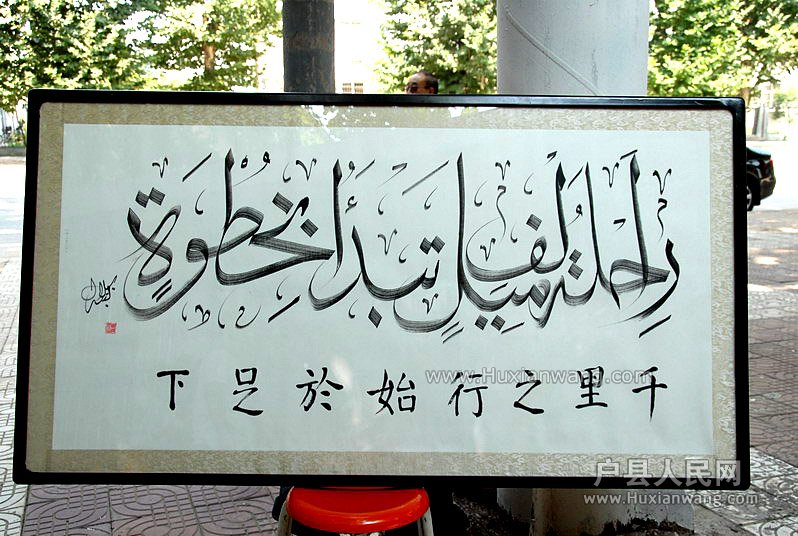 رحلة ألف ميلٍ تبدأ بخطوةٍ
千里之行始於足下
www.Huxianwang.com
户县人民网
www.Huxianwang.com